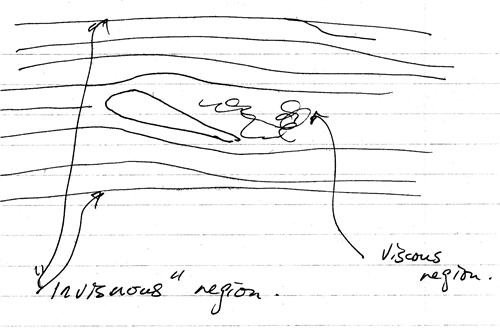 "Inviscuous" region.
viscous
region.